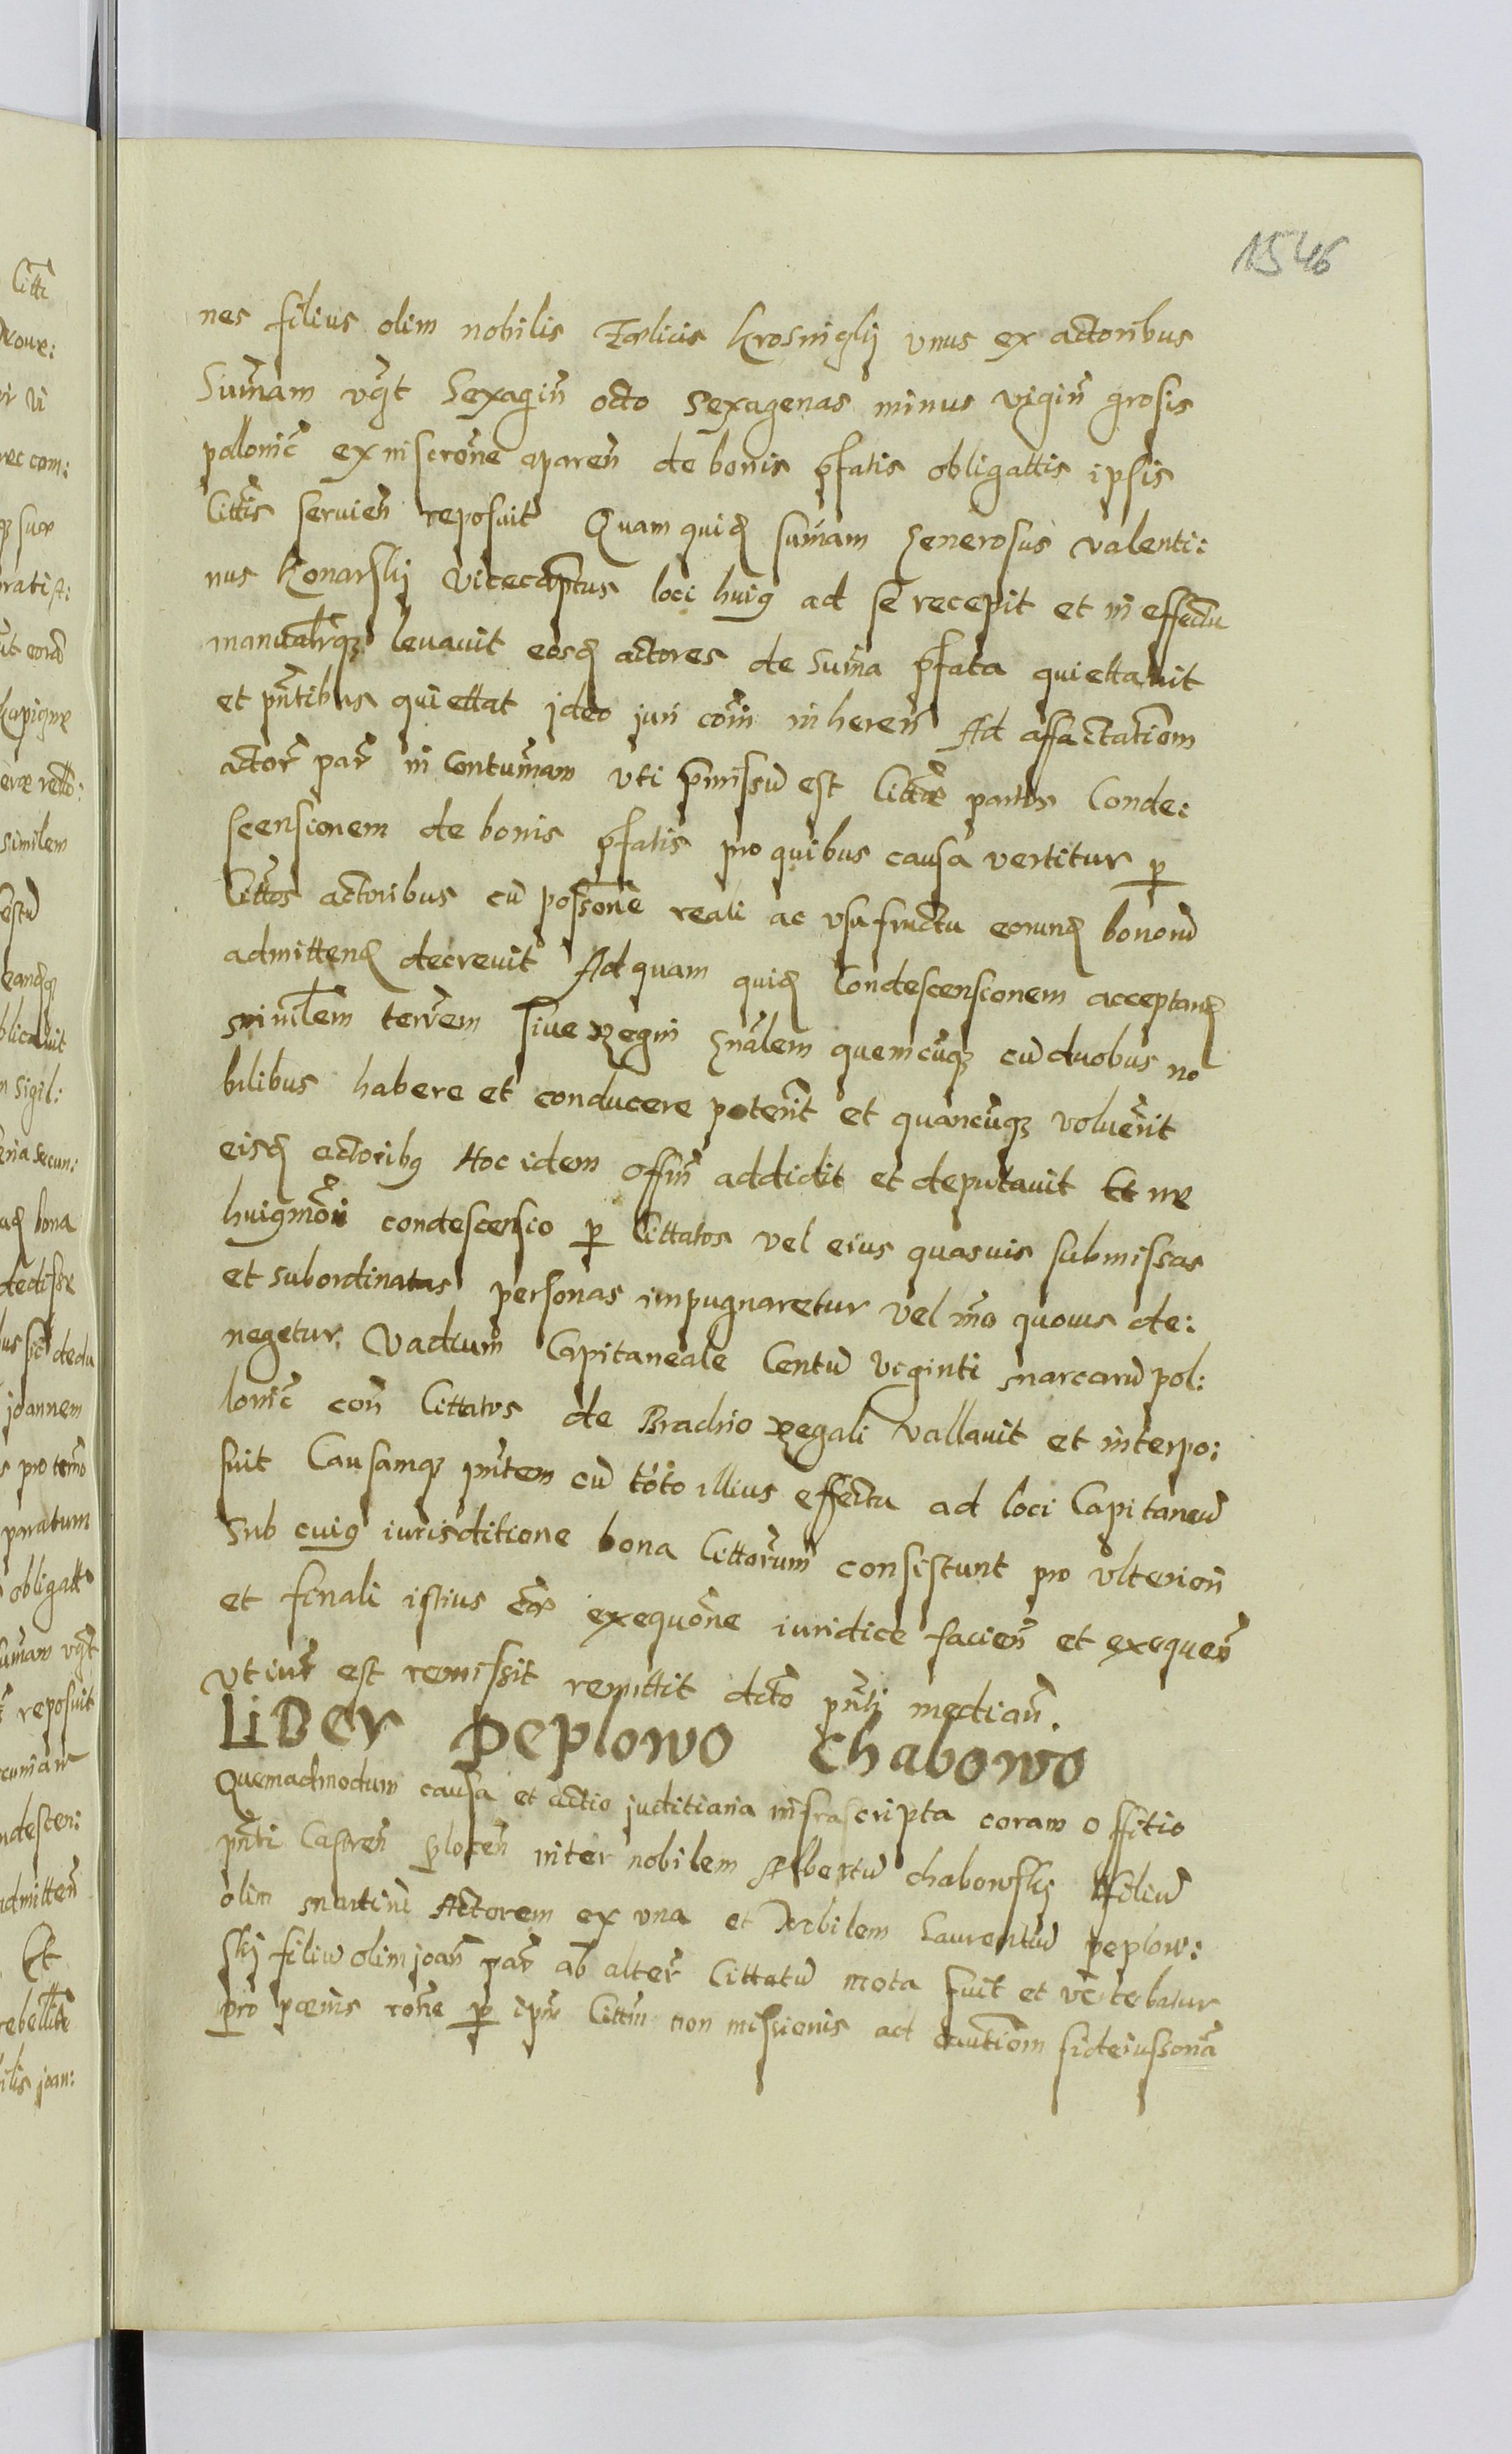 1546
nes filius olim nobilis Fœlicis Krosniglij vnus ex actoribus
Summam vigt Sexagiñ octo Sexagenas minus vigiñ grosis
pollonic̃ ex niscrone aparen̄ de bonis p̄fatis obligattis ipsis
Cittis seruien̄ reposuit Quam quid̄ sumam Generosus valenti:
nus Konarskij vicecaptus loci huiꝯ ad se recepit et in effectu
manualrqꝫ leuauit eosd̄ actores de suma p̄fata quiettauit
et pn̄tibus quiettat ideo juri com̄ inheren̄ Ad affactationem
actor̄ par̄ in Contumam vti p̄missū est Cittæ partis Conde:
scensionem de bonis p̄fatis pro quibus causa vertitur ꝑ
Cittos actoribus cū possone reali ac vsufructu eorund̄ bonorū
admittend̄ decreuit Ad quam quid̄ Condescensionem acceptand̄
similem terrem siue Regni Gnalem quemcūqꝫ cū duobus no
bilibus habere et conducere poterit et quancūqꝫ voluerit
eisd̄ actoribꝯ Hoc idem offm̄ addidit et deputauit Et ne
huiꝯmōi condescensio ꝑ Cittatos vel eius quasuis submissas
et subordinatas personas impugnaretur vel mō quouis de:
negetur Vadium Capitaneale Centū viginti marcarū pol:
lonic̃ con̄ Cittatos de Brachio Regali vallauit et interpo:
suit Causamqꝫ pn̄tem cū toto illius effectu ad loci Capitaneū
sub cuiꝯ iurisditione bona Cittorum consistunt pro vlteriori
et finali istius exequone iuridice facien̄ et exequen̄
vt iur̄ est remissit remittit dcto pn̄ti median̄.
LiBer Peplowo Chabowo
Quemadmodum causa et actio juditiaria infrascripta coram offitio
pn̄ti Castren̄ plocen̄ inter nobilem Albertū chabowskij filiū
olim martini Actorem ex vna et Nobilem Laurentiū peplow:
skij filiū olim joan̄ par̄ ab alter̄ Cittatū mota fuit et vertebatur
pro pœnis rone ꝑ ipm̄ Cittm̄ non missionis ad cautiom fideiussoria